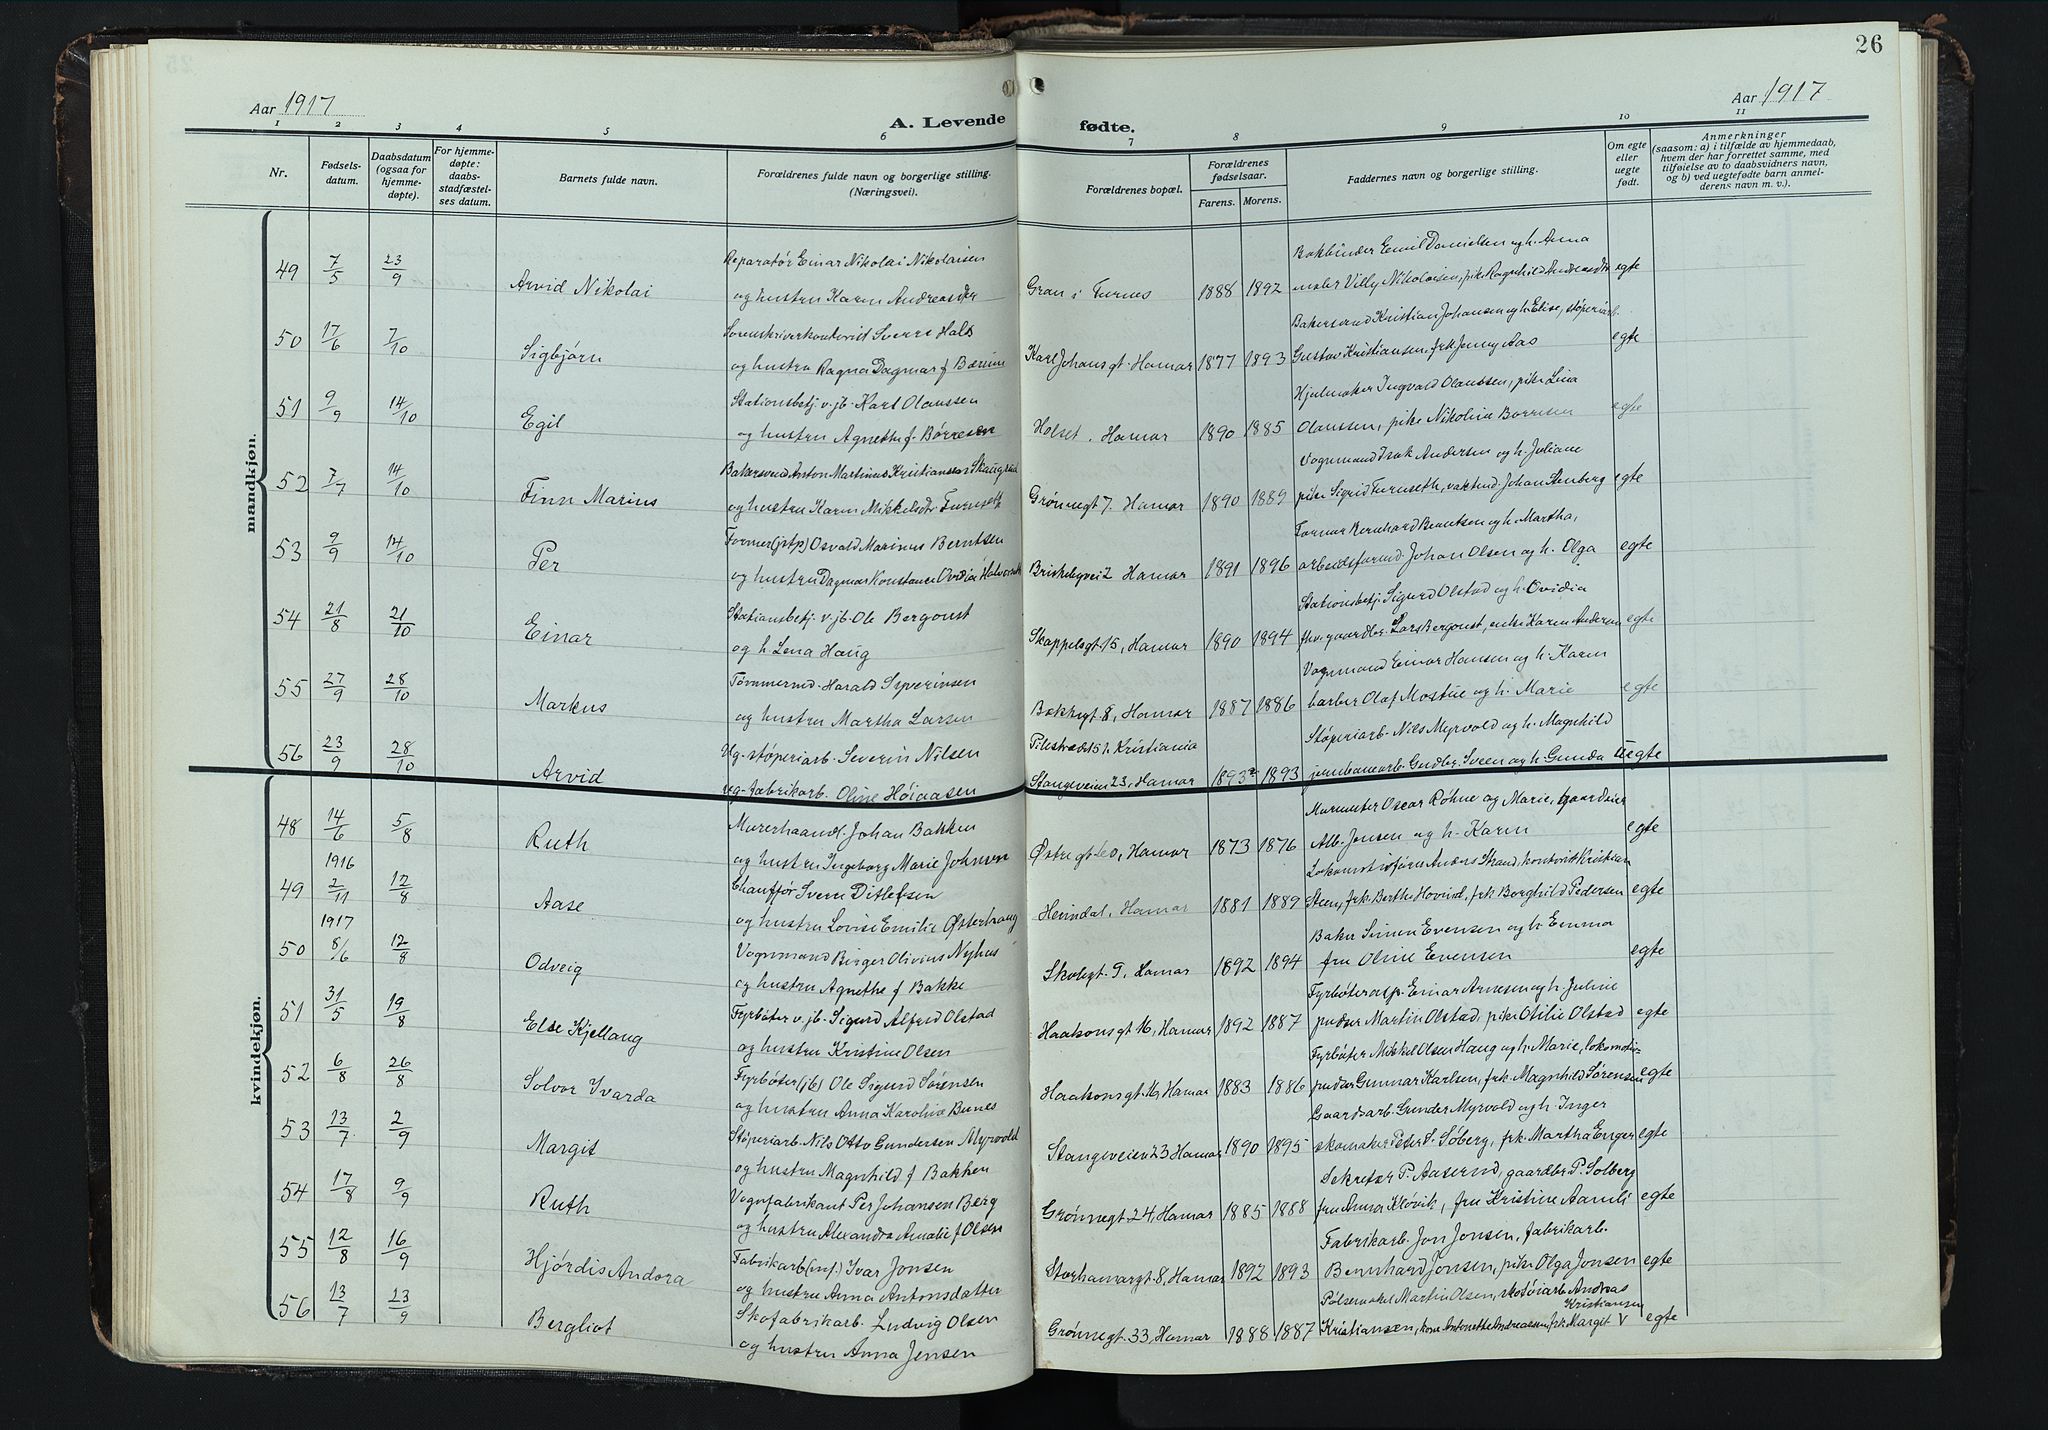 26
Aar 1917
A. Levende fødte.
Aar 1917
1 2 3 4 5 6 7 8 9 10 11
Nr.
Fødsels-
datum.
Daabsdatum
(ogsaa for
hjemme-
døpte).
For hjemme-
døpte:
daabs-
stadfæstel-
ses datum.
Barnets fulde navn.
Forældrenes fulde navn og borgerlige stilling.
(Næringsvei).
Forældrenes bopæl.
Forældrenes
fødselsaar.
Farens. Morens.
Faddernes navn og borgerlige stilling.
Om egte
eller
uegte
født.
Anmerkninger
(saasom: a) i tilfælde av hjemmedaab,
hvem der har forrettet samme, med
tilføielse av to daabsvidners navn,
og b) ved uegtefødte barn anmel-
derens navn m. v.).
mandkjøn.
Reparatør Einar Nikolai Nikolaisen Bokbinder Emil Danielsen og h. Anna
49 7/5 23/9 Arvid Nikolai og hustru Karen Andreasdtr Gran i Furnes 1888 1892 maler Villy Nikolaisen, pike Ragnhild Andreasdtr egte
Sorenskriverkontorist Sverre Hals Bakersvend Kristian Johansen og h. Elise, støperiarb.
50 17/6 7/10 Sigbjørn og hustru Ragna Dagmar f. Bærum Karl Johansgt. Hamar 1877 1893 Gustav Kristiansen, frk Jenny Aas egte
Stationsbetj. v. jb. Karl Olaussen Hjulmaker Ingvald Olaussen, pike Lina
51 9/9 14/10 Egil og hustru Agnethe f. Børresen Holset, Hamar 1890 1885 Olaussen, pike Nikoline Børresen egte
Bakersvend Anton Martinus Kristiansen Vognmand Isak Andersen og h. Juliane
52 7/7 14/10 Finn Marius og hustru Karen Mikkelsdtr Furuseth Grønnegt 7. Hamar 1890 1889 pike Sigrid Furuseth, vaktmd. Johan Stenberg egte
Former (jstp) Osvald Marinus Berntsen Former Bernhard Berntsen og h. Martha,
53 9/9 14/10 Per og hustru Dagmar Konstance Ovidia Briskebyvei 2 Hamar 1891 1896 arbeidsformd. Johan Olsen og h. Olga egte
Stationsbetj. v. jb. Ole Bergqust Stationsbetj. Sigurd Olstad og h. Ovidia
54 21/8 21/10 Einar og h. Lena Haug Skappelsgt. 15, Hamar 1890 1894 fhv. gaardbr. Lars Bergqust, enke Karen egte
Tømmermd. Harald Syverinsen Vognmand Einar Hansen og h. Karen
55 27/9 28/10 Markus og hustru Martha Larsen Bakkegt. 8, Hamar 1887 1886 barber Olaf Mostue og h. Marie egte
Ug. støperiarb. Severin Nilsen Pilestrædet 51 Kristiania Støperiarb. Nils Myrvold og h. Magnhild
56 23/9 28/10 Arvid Ug. fabrikarb. Oline Høiaasen Stangeveien 23, Hamar 1893 1893 jernbanearb. Gudbr. Sveen og h. Gunda Uegte
kvindekjøn.
Murerhaandl. Johan Bakken Murmester Oscar Røhne og Marie, gaardeier
48 14/6 5/8 Ruth og hustru Ingeborg Marie Johnsen Østregt 60, Hamar 1873 1876 Alb. Jensen og h. Karen egte
1916
Chauffør Svern Ditlefsen Lokomotivfører Anders Strand, kontorist Kristian
49 2/11 12/8 Aase og hustru Lovise Emilie Østerhaug Heimdal, Hamar 1881 1889 Steen, frk. Berthe Hovind, frk Borghild Pedersen egte
1917
Vognmand Birger Olivius Nyhus Baker Simen Evensen og h. Emma
50 8/6 12/8 Odveig og hustru Agnethe f Bakke Skolegt. 9, Hamar 1892 1894 fru Oline Evensen egte
Fyrbøter v. jb. Sigurd Alfred Olstad Fyrbøterasp. Einar Arnesen og h. Juline
51 31/5 19/8 Else Kjellaug og hustru Kristine Olsen Haakonsgt 16, Hamar 1892 1887 pudser Martin Olstad, pike Otilie Olstad egte
Fyrbøter (jb) Ole Sigurd Sørensen Fyrbøter Mikkel Olsen Haug og h. Marie, lokomotiv-
52 6/8 26/8 Solvor Ivarda og hustru Anna Karoline Bunes Haakonsgt. 16, Hamar 1883 1886 pudser Gunnar Karlsen, frk. Magnhild Sørensen egte
Støperiarb. Nils Otto Gundersen Myrvold Gaardsarb. Gunder Myrvold og h. Inger
53 13/7 2/9 Margit og hustru Magnhild f Bakken Stangeveien 23 Hamar 1890 1895 skomaker Peter S. Søberg, frk. Martha Enger egte
Vognfabrikant Per Johansen Berg Sekretær P. Aaserud, gaardbr P. Solberg
54 17/8 9/9 Ruth og hustru Alexandra Amalie f Olsen Grønnegt 24, Hamar 1885 1888 fru Anna Kløvik, fru Kristine Aamli egte
Fabrikarb (inf.) Ivar Jonsen Fabrikarb. Jon Jonsen, fabrikarb.
55 12/8 16/9 Hjørdis Andora og hustru Anna Antonsdatter Storhamargt. 8, Hamar 1892 1893 Bernhard Jonsen, pike Olga Jonsen egte
Skofabrikarb. Ludvig Olsen Pølsemaker Martin Olsen, skotøiarb Andreas
Kristiansen
56 13/7 23/9 Bergliot og hustru Anna Jensen Grønnegt. 33, Hamar 1888 1887 Kristiansen, kone Antonette Andreassen, frk Margit V egte